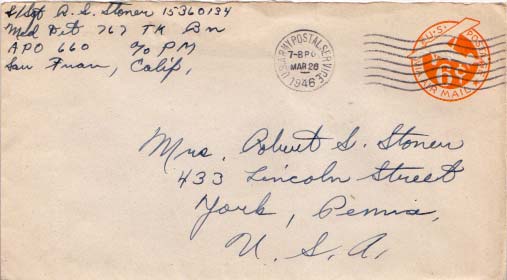 S/Sgt R. S. Stoner 15360194
Med Det 767 TK Bn
APO 660 c/o PM
San Fran, Calif,
U.S. ARMY POSTAL SERVICE
7-8 PM
MAR 26
1946
U.S. POSTAGE
VIA AIR MAIL
Mrs. Robert S. Stoner
433 Lincoln Street
York, Penna,
U. S. A.